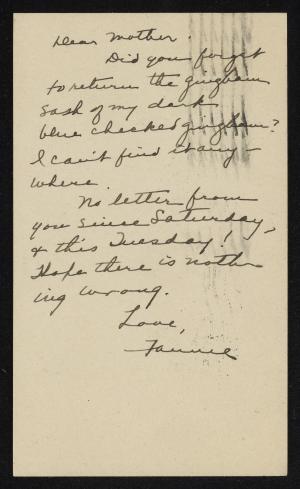 Dear Mother.
Did you forget
to return the gingham
sash of my dark
blue checked gingham?
I can't find it any-
where.
No letter from
you since Saturday,
& this Tuesday!
Hope there is noth-
ing wrong.
Love,
Fannie